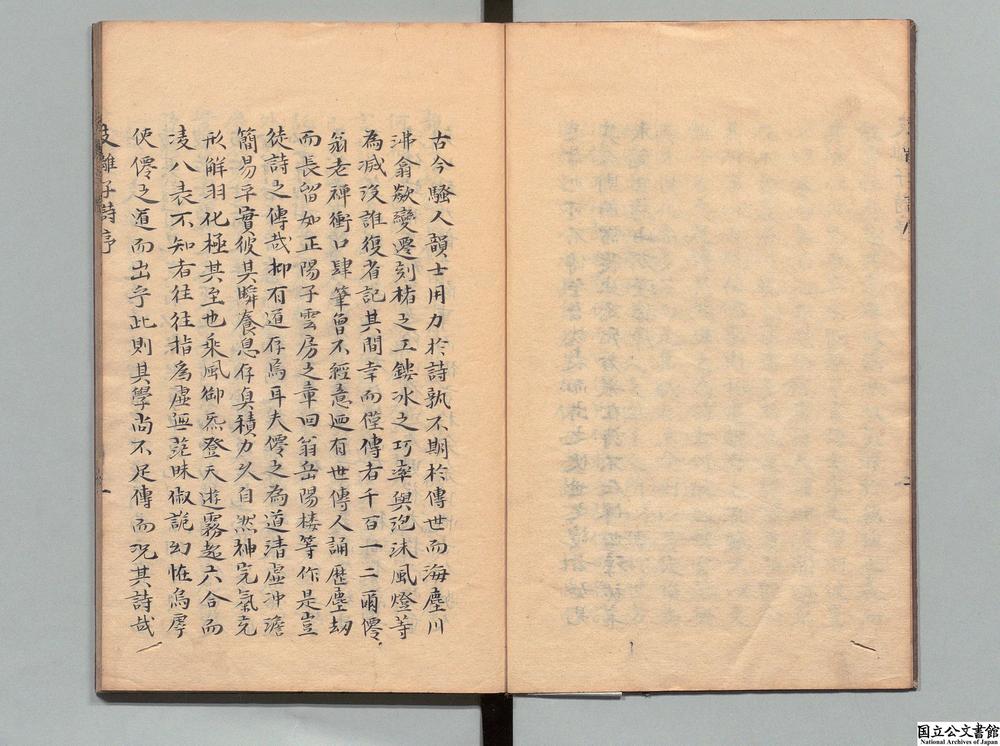 古今騷人韻士用力於詩孰不期於傳世而海塵川
沸翁歘變遷刻楮之工鏤冰之巧率與泡沫風燈等
為滅沒誰復省記其間幸而僅傳者千百一二爾僊
翁老禪衝口肆筆曾不經意迺有世傳人誦歷塵劫
而長留如正陽子雲房之章回翁岳陽樓等作是豈
徒詩之傳哉抑有道存焉耳夫僊之為道清虛沖澹
簡易平實彼其瞬養息存真積力久自然神完氣充
形解羽化極其至也乘風御炁登天遊霧超六合而
凌八表不知者往往指為虛無茫昧俶詭幻怪烏虖
使僊之道而出乎此則其學尚不足傳而況其詩哉
離子詩序
一
国立公文書館
National Archives of Japan